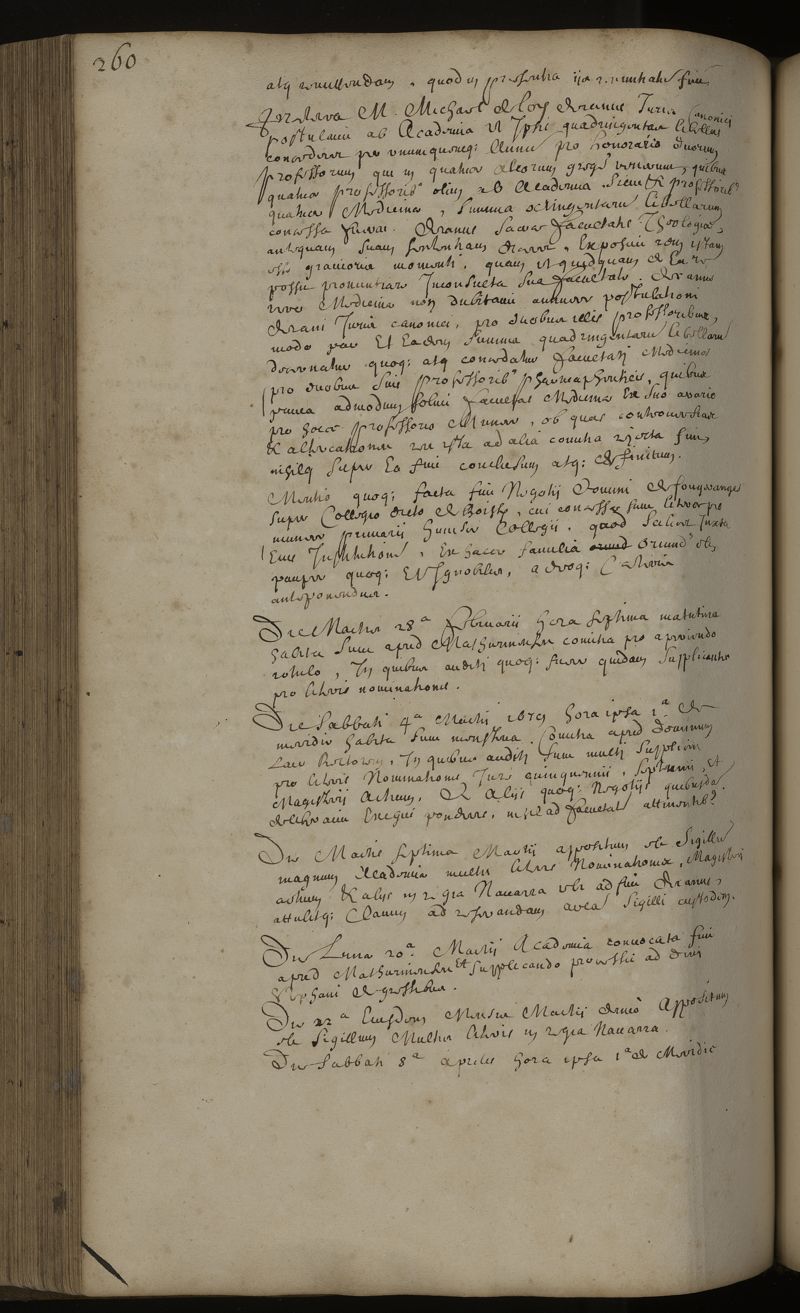 260
atq; , quod in ijs fuit
M. Michael de loy Decanus Juris Canonici
postulavit ab Academia ut Ipsi quadringentae libellae
concederentur per unumquemq; Annum pro honorario duorum
professorum qui in quatuor , quibus
quatuor professorib' olim ab Academia sicut & professorib'
quatuor Medicinae , summa octingentarum libellarum
concessa fuerat . Decanus Sacrae Facultatis Theologiae,
antequam suam sententiam , Exposuit rem istam
esse gravioris momenti , quam ut quidquam de Ea re
posset pronuntiare Inconsulta sua facultate . Decanus
vero Medicinae non dubitavit annuere postulationi
Decani Juris canonici, pro duobus illis professoribus,
modo par Et Eadem summa quadringentarum libellarum
decernatur quoq; atq concedatur Facultati Medicinae
pro duobus suis professorib' pharmapheuticis, quibus
pauca admodum solvit Facultas Medicinae Ex suo aerario
pro hocce professorio Munere , ob quas controversias
& altercationes res ista ad alia comitia rejecta fuit,
nihilq super Ea fuit conclusum atq; definitum.
Mentio quoq; facta fuit Negotij Domini de fouqueanges
super Collegio dicto de Boissy , cui concessae sunt litterae pro
munere primarij hujusce Collegij , quod scilicet Juxta
Eius Institutionem , Ex hacce familia oriund' sit,
pauper quoq; Et Ignobilis, adeoq; Caeteris
anteponendus .
Die Martis 28a Februarii hora septima matutina
habita sunt apud Mathurinenses comitia pro aperiendo
rotulo , In quibus auditi quoq; fuere quidam supplicantes
pro litteris nominationis .
Die Sabbati 4a Martij 1679 hora ipsa 1a de
meridie habita sunt menstrua Comitia apud Dominum
Rectorem, In quibus auditi sunt multi supplices
pro litteris Nominationis Juris quinquennii , septennii, et
Magisterij Artium, & Alijs quoq; Negotijs quibusdam
, nihil ad facultatem attinentib'
Die Martis septima Martij appositum est Sigillum
magnum Academiae multis litteris Nominationis , Magisterij
artium & alijs in regia Navarra ubi adfuit Decanus,
attulitq; Clavem ad reserandam arcam Sigilli custodem.
Die Lunae 20a. Martij Academia convocata fuit
apud Mathurinenses Et supplicando processit ad divi
Stephani de gressibus .
Die 22a Eiusdem Mensis Martij denuo Appositum
est Sigillum Multis litteris in regia Navarra .
Die Sabbati 8a aprilis hora ipsa 1a de Meridie